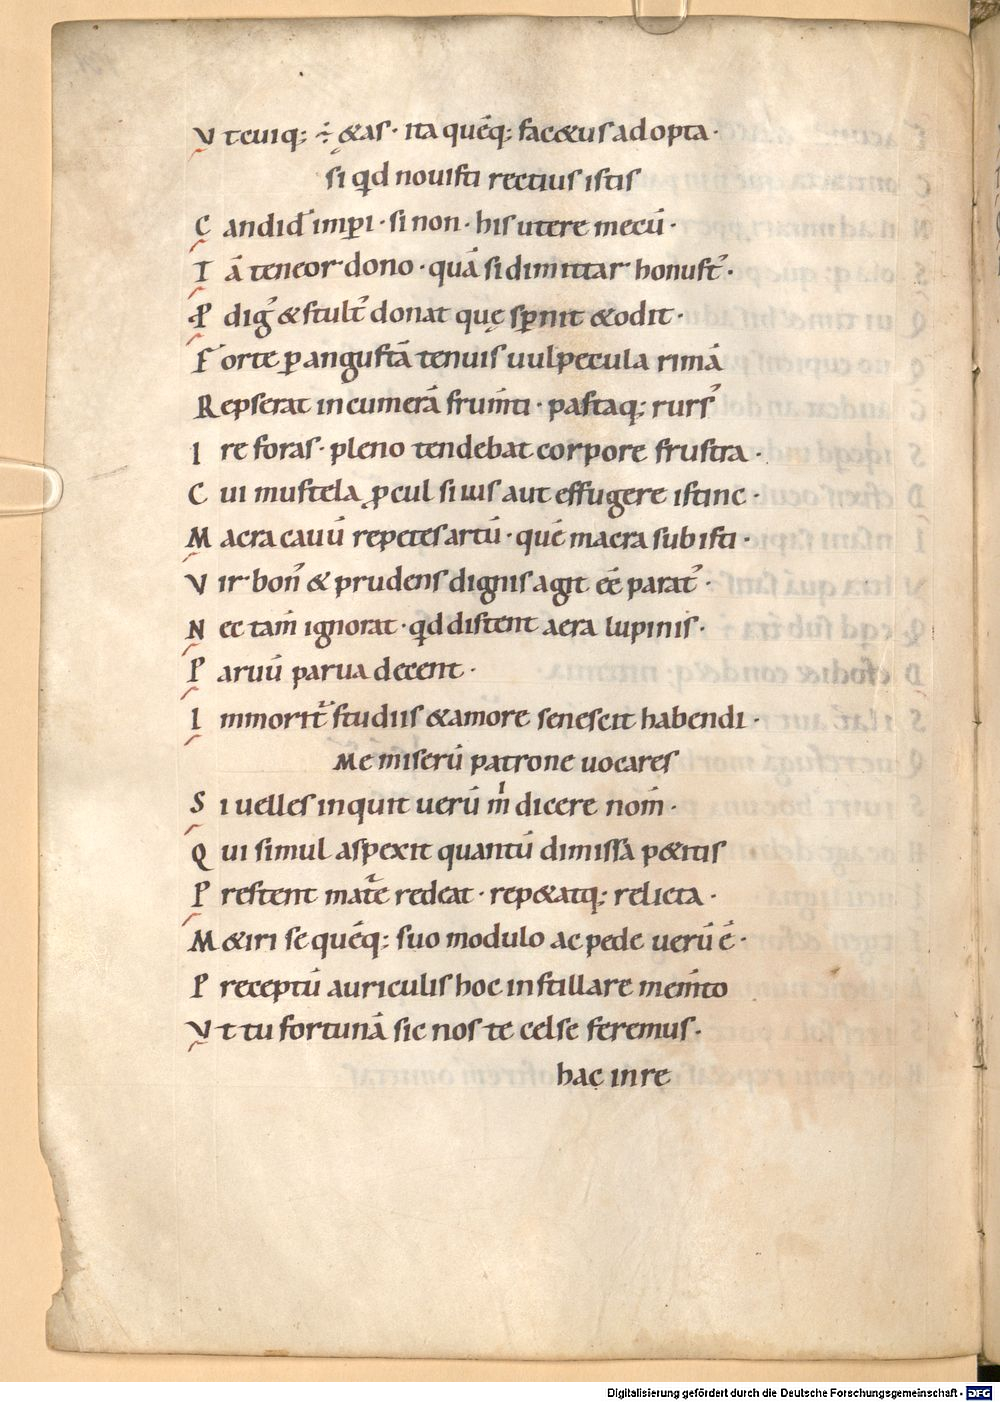 V t cuiq; ÷ &as · ita quēq; fac&us adopta ·
si qd nouisti rectius istis
C andid᾿ imp̄i · si non · his utere mecū ·
T ā teneor dono · quā si dimittar honust᾿ ·
P dig᾿ & stult᾿ donat quę sp̄nit & odit ·
F orte p̲ angustā tenuis uulpecula rimā
R epserat in cumerā frum̄ti · pastaq; rurs᾿
I re foras · pleno tendebat corpore frustra ·
C ui mustela p̲cul si uis aut effugere istinc ·
M acra cauū repetes artū · quē macra subisti ·
V ir bon᾿ & prudens dignis agit eē parat᾿ ·
N ec tam̄ ignorat · qd distent aera lupinis ·
P aruū parua decent ·
I mmorit᾿ studiis & amore senescit habendi ·
Me miserū patrone uocares
S i uelles inquit uerū m̍ dicere nom̄ ·
Q ui simul aspexit quantū dimissa p&itis
P restent mat᾿e redeat · rep&atq; relicta ·
M &iri se quēq; suo modulo ac pede uerū ē ·
P receptū auriculis hoc instillare mem̄to
V t tu fortunā sic nos te celse feremus ·
hac in re
Digitalisierung gefördert durch die Deutsche Forschungsgemeinschaft · DFG